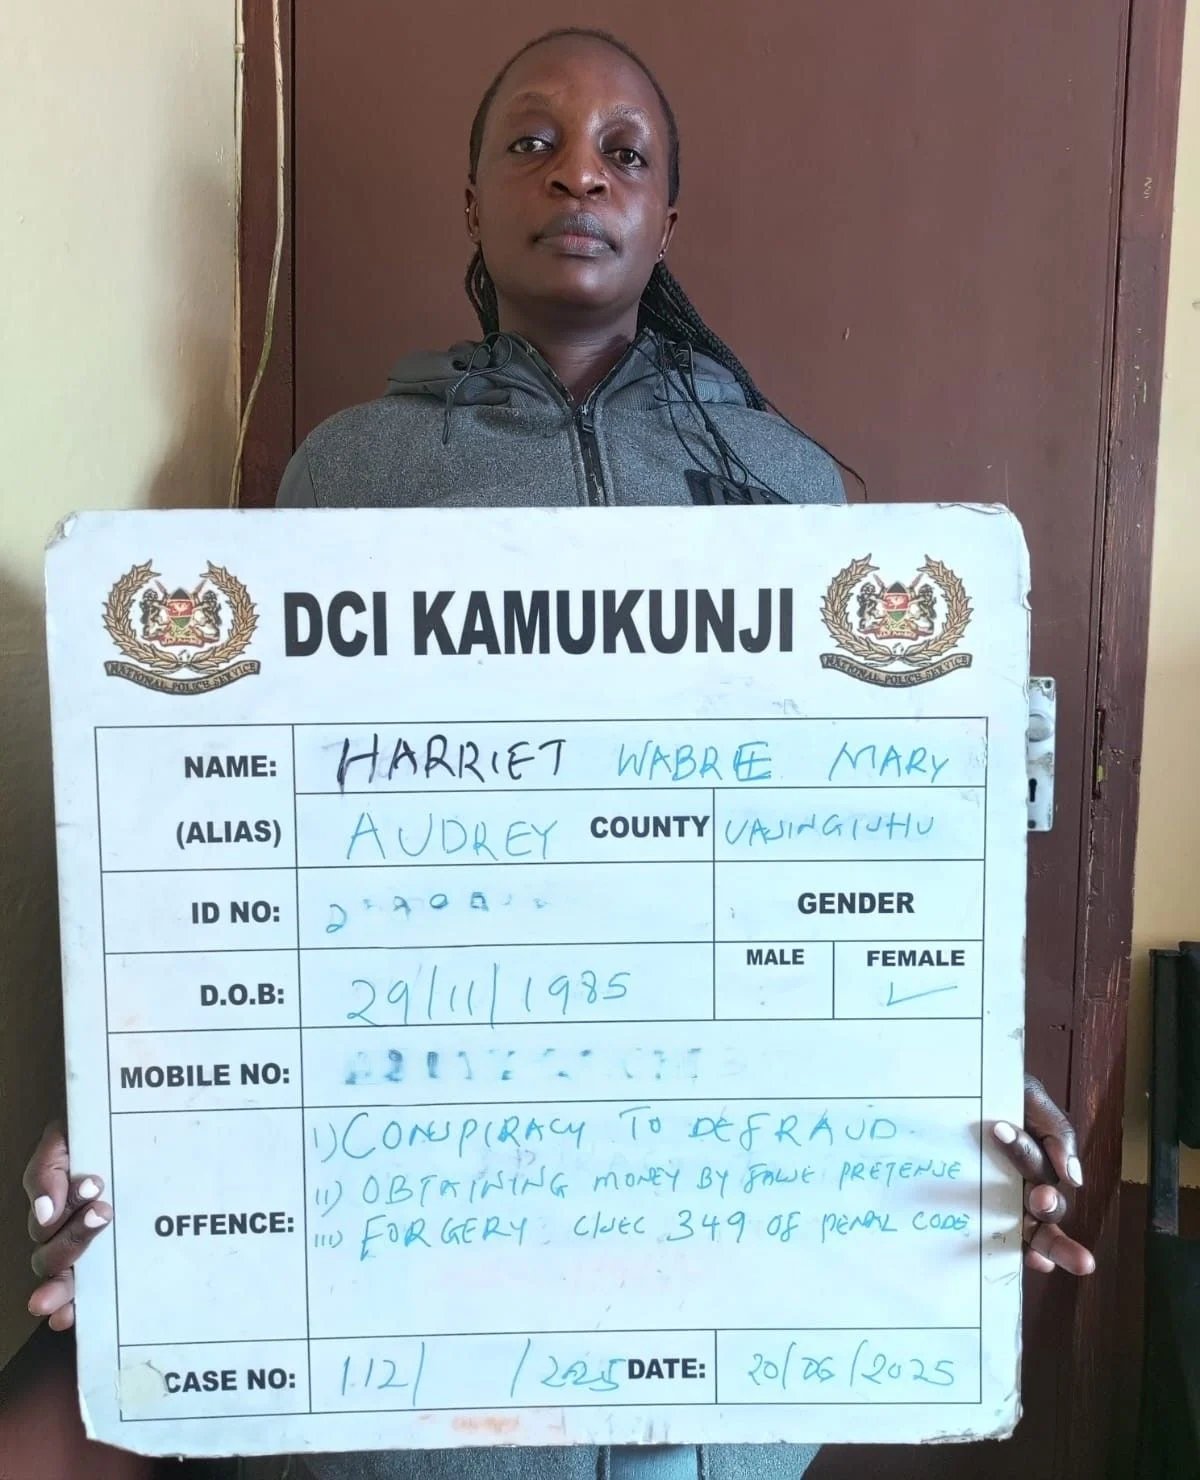 DCI KAMUKUNJI
NATIONAL POLICE SERVICE
NATIONAL POLICE SERVICE
NAME: HARRIET WABREE MARY
(ALIAS) AUDREY COUNTY UASINGISHU
ID NO:
GENDER
MALE FEMALE
D.O.B: 29/11/1985
MOBILE NO:
OFFENCE:
I) CONSPIRACY TO DEFRAUD.
II) OBTAINING MONEY BY FALSE PRETENSE
III) FORGERY C/SEC 349 OF PENAL CODE
CASE NO: 112/ /2025 DATE: 20/06/2025